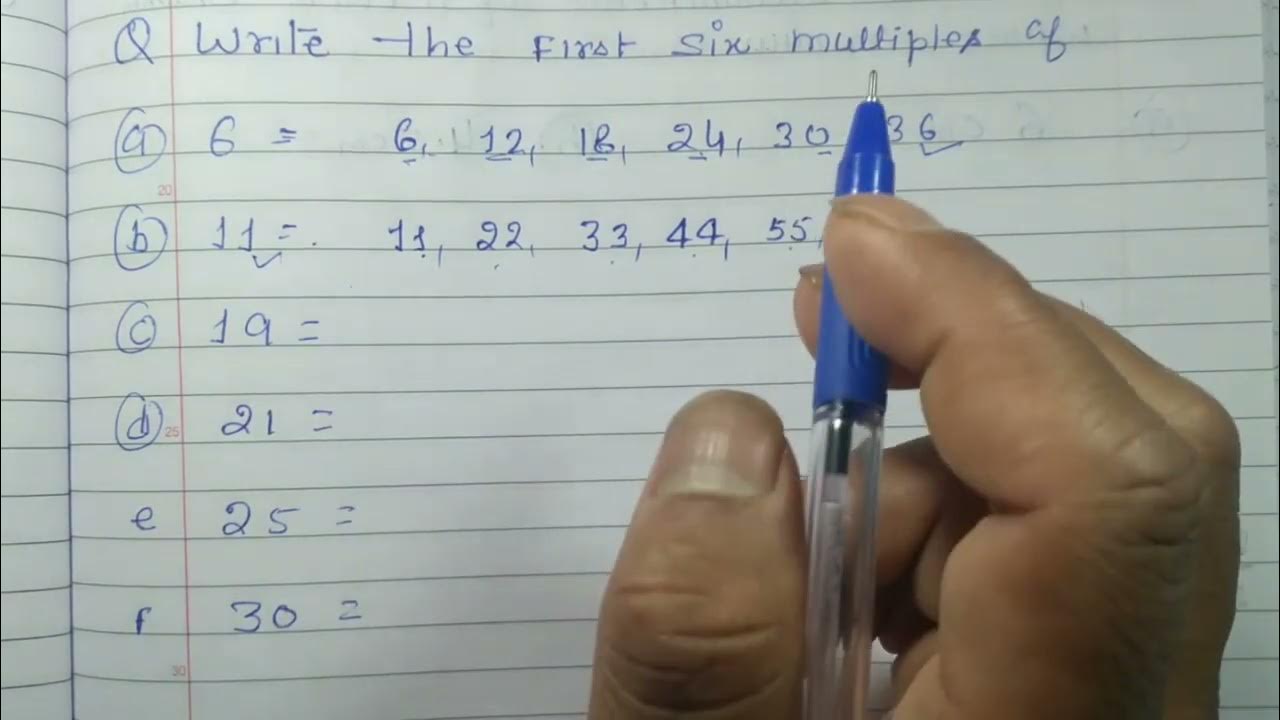 Q Write the First Six multiples of
(a) 6 = 6, 12, 18, 24, 30 36
20
(b) 11 = 11, 22, 33, 44, 55,
(c) 19 =
(d) 21 =
25
e 25 =
f 30 =
30